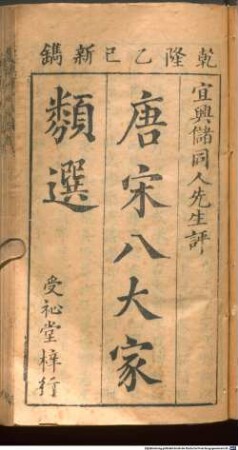 乾隆乙巳新鐫
宜興儲同人先生評
唐宋八大家
類選
受祉堂梓行